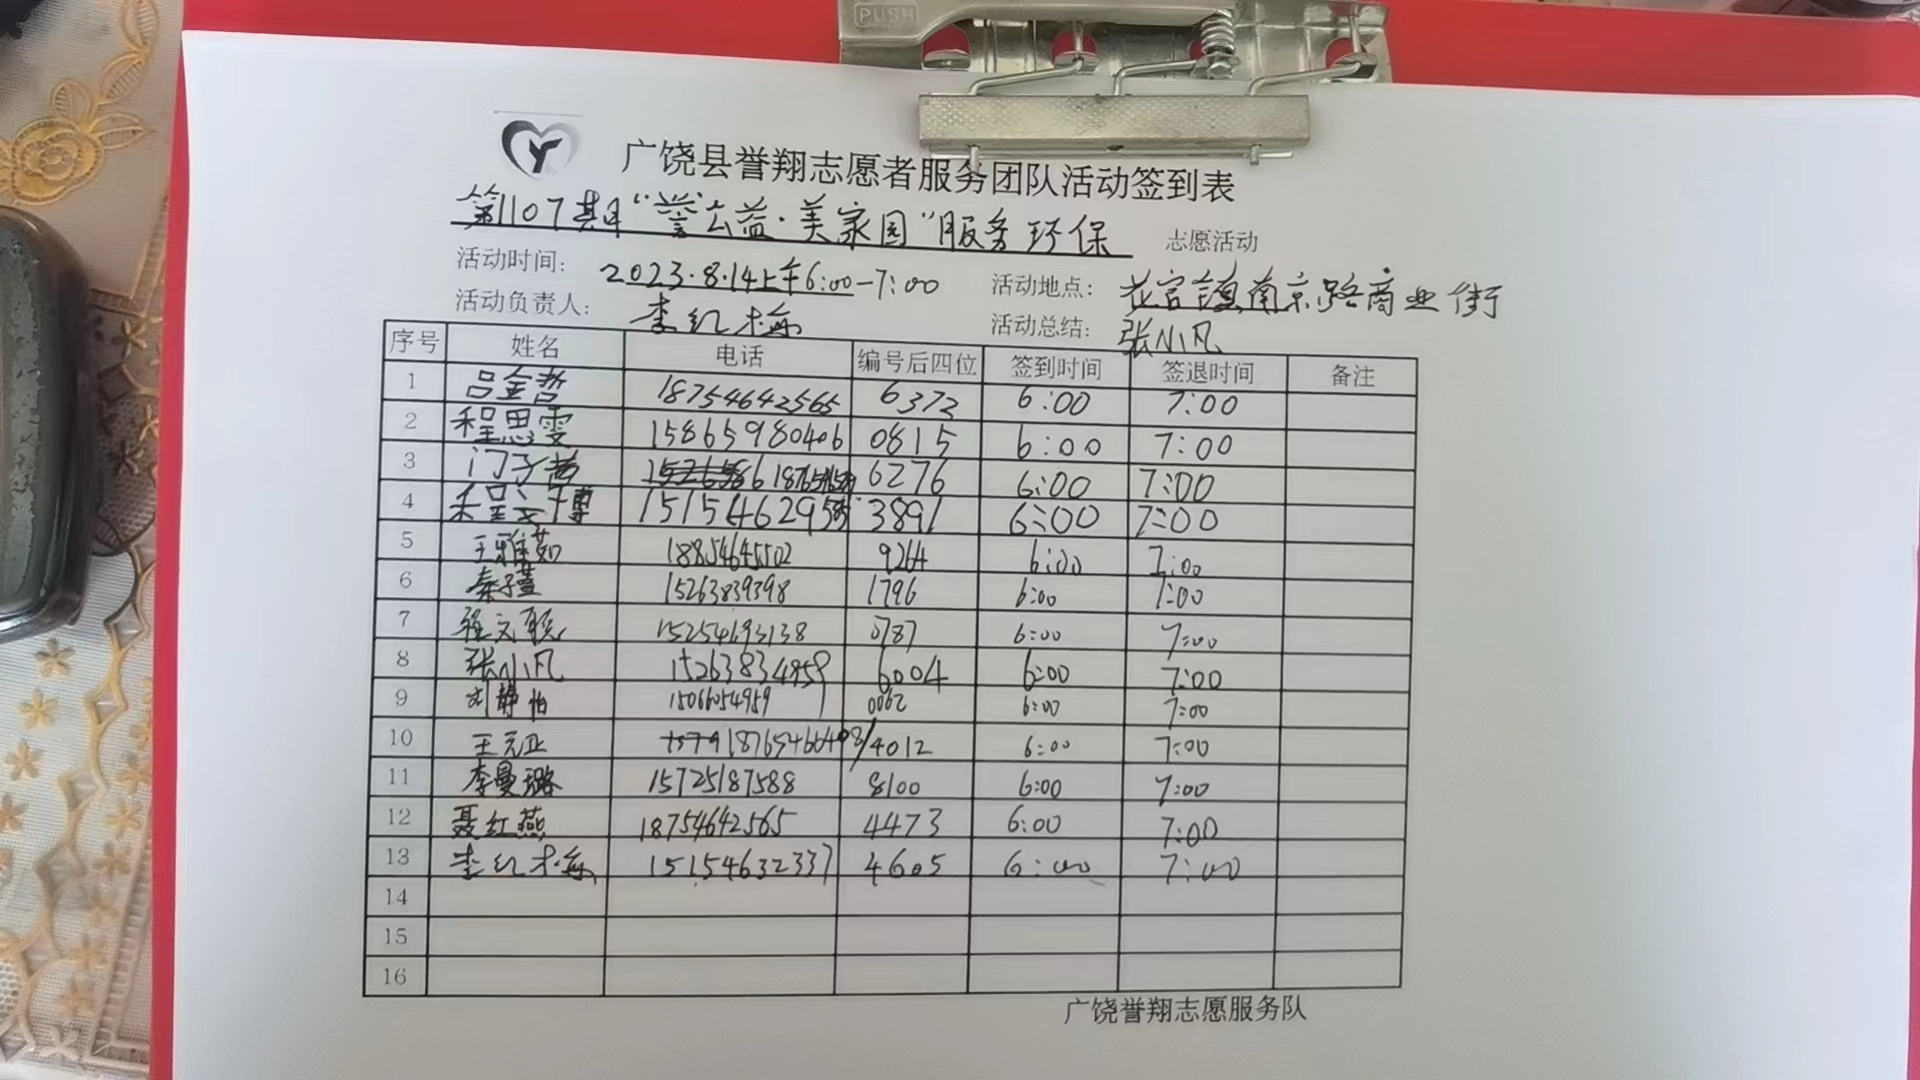 PUSH
广饶县誉翔志愿者服务团队活动签到表
第1107期“誉公益·美家园”服务环保 志愿活动
活动时间: 2023.8.14上午6:00-7:00 活动地点: 花官镇南京路商业街
活动负责人: 李红梅 活动总结: 张小凡
序号 姓名 电话 编号后四位 签到时间 签退时间 备注
1 吕金哲 18754642565 6372 6:00 7:00
2 程思雯 15865980406 0815 6:00 7:00
3 门子 6276 6:00 7:00
4 程 博 3891 6:00 7:00
5 王雅茹 18854645502 9264 6:00 7:00
6 秦子萱 15263839398 1796 6:00 7:00
7 程文聪 15254693138 0787 6:00 7:00
8 张小凡 15263834959 6004 6:00 7:00
9 刘静怡 15066054959 0062 6:00 7:00
10 王元亚 4012 6:00 7:00
11 李曼璐 15725187588 8100 6:00 7:00
12 聂红燕 18754642565 4473 6:00 7:00
13 李红梅 15154632337 4605 6:00 7:00
14
15
16
广饶誉翔志愿服务队